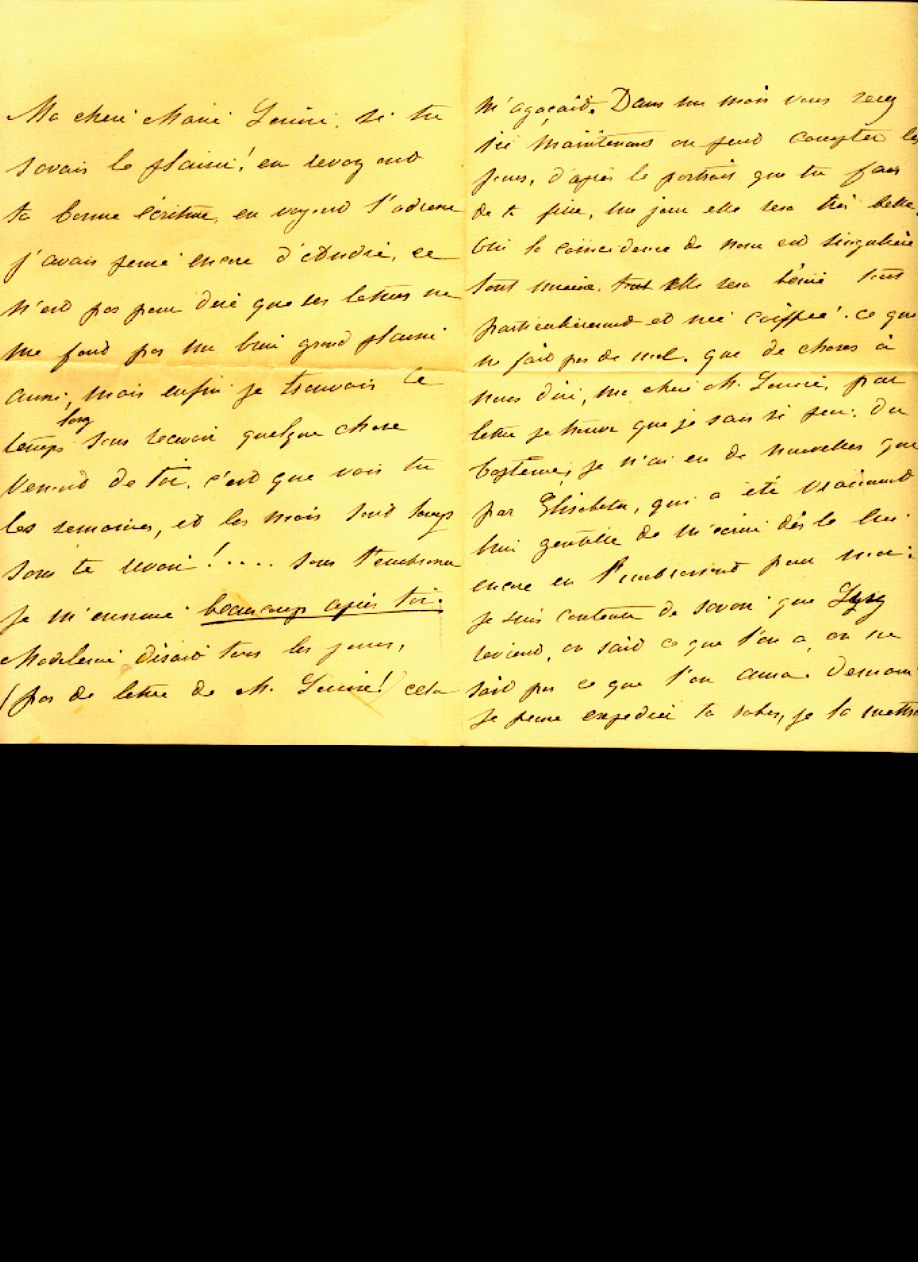 Ma chère Marie Louise, si tu
savais le plaisir! en revoyant
ta bonne écriture, en voyant l'adresse
j'avais pensé encore d'André, ce
n'est pas pour dire que ses lettres ne
me font pas un bien grand plaisir
aussi, mais enfin je trouvais le
temps long sans recevoir quelque chose
venant de toi. c'est que vois tu
les semaines, et les mois sont longs
sans te revoir!.... sans t'embrasser
je m'ennuie beaucoup après toi.
Madeleine disait tous les jours,
(pas de lettre de M. Louise!) cela
m'agaçait. Dans un mois vous serez
ici maintenant on peut compter les
jours, d'après le portrait que tu fais
de ta fille, un jour elle sera très belle.
Oui la coïncidence de nom est singulière
tout même. elle sera bénie tout
particulièrement et née coiffée! ce que
ne fait pas de mal. que de choses à
nous dire, ma chère M. Louise, par
lettre je trouve que je sais si peu. Du
baptême, je n'ai eu de nouvelles que
par Elisabeth, qui a été vraiment
bien gentille de m'écrire dès le
encore en l'embrassant pour moi.
je suis contente de savoir que
revient, on sait ce que l'on a, on ne
sait pas ce que l'on aura. Demain
je pense expédier ta robe, je la mettrai